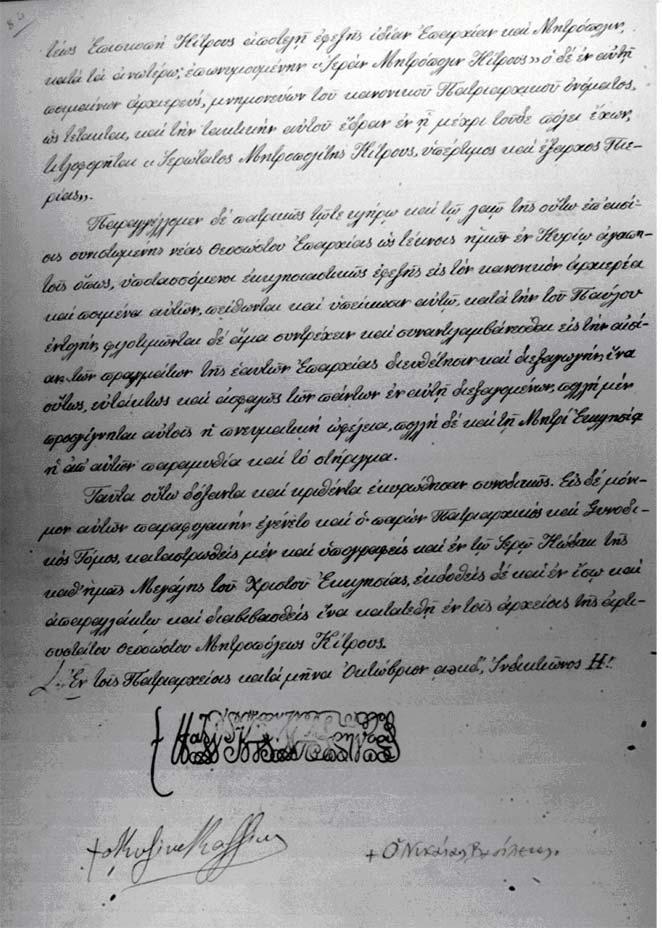 τέως Ἐπισκοπὴ Κίτρους ἀποτελῇ ἐφεξῆς ἰδίαν Ἐπαρχίαν καὶ Μητρόπολιν,
κατὰ τὰ ἀνωτέρω, ἐπονομαζομένην «Ἱερὰν Μητρόπολιν Κίτρους» ὁ δὲ ἐν αὐτῇ
ποιμαίνων ἀρχιερεύς, μνημονεύων τοῦ κανονικοῦ Πατριαρχικοῦ ὀνόματος,
ὡς τέτακται, καὶ τὴν τακτικὴν αὐτοῦ ἕδραν ἐν ᾗ μέχρι τοῦδε πόλει ἔχων,
τιτλοφορῆται «Ἱερώτατος Μητροπολίτης Κίτρους, ὑπέρτιμος καὶ ἔξαρχος Πιε-
ρίας».
Παραγγέλλομεν δὲ πατρικῶς τῷ τε κλήρῳ καὶ τῷ λαῷ τῆς οὕτω ἐπ' αἰσί-
οις συνισταμένης νέας θεοσώστου Ἐπαρχίας ὡς τέκνοις ἡμῶν ἐν Κυρίῳ ἀγαπη-
τοῖς ὅπως, ὑποτασσόμενοι ἐκκλησιαστικῶς ἐφεξῆς εἰς τὸν κανονικὸν ἀρχιερέα
καὶ ποιμένα αὐτῶν, πείθωνται καὶ ὑπείκωσιν αὐτῷ, κατὰ τὴν τοῦ Παύλου
ἐντολήν, φιλοτιμῶνται δὲ ἅμα συντρέχειν καὶ συναντιλαμβάνεσθαι εἰς τὴν αἰσί-
αν τῶν πραγμάτων τῆς ἑαυτῶν Ἐπαρχίας διευθέτησιν καὶ διεξαγωγήν, ἵνα
οὕτως, εὐτάκτως καὶ ἀσφαλῶς τῶν πάντων ἐν αὐτῇ διεξαγομένων, πολλὴ μὲν
προσγίγνηται αὐτοῖς ἡ πνευματικὴ ὠφέλεια, πολλὴ δὲ καὶ τῇ Μητρὶ Ἐκκλησίᾳ
ἡ ἀπ' αὐτῶν παραμυθία καὶ τὸ στήριγμα.
Ταῦτα οὕτω δόξαντα καὶ κριθέντα ἐκυρώθησαν συνοδικῶς. Εἰς δὲ μόνι-
μον αὐτῶν παραφυλακὴν ἐγένετο καὶ ὁ παρὼν Πατριαρχικὸς καὶ Συνοδι-
κὸς Τόμος, καταστρωθεὶς μὲν καὶ ὑπογραφεὶς καὶ ἐν τῷ Ἱερῷ Κώδικι τῆς
καθ' ἡμᾶς Μεγάλης τοῦ Χριστοῦ Ἐκκλησίας, ἐκδοθεὶς δὲ καὶ ἐν ἴσῳ καὶ
ἀπαραλλάκτῳ καὶ διαβιβασθεὶς ἵνα κατατεθῇ ἐν τοῖς ἀρχείοις τῆς ἀρτι-
συστάτου θεοσώστου Μητροπόλεως Κίτρους.
Ἐν τοῖς Πατριαρχείοις κατὰ μῆνα Ὀκτώβριον αϡκδ', Ἰνδικτιῶνος Η'.